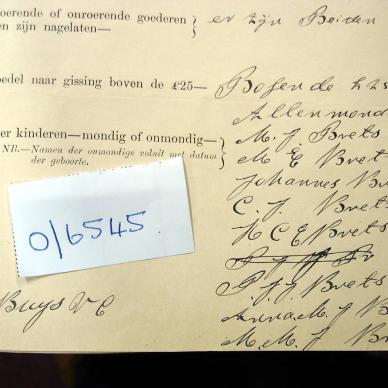 oerende of onroerende goederen
en zijn nagelaten—
er zijn Beiden
oedel naar gissing boven de £25—
Bogen de
Allen mondi
er kinderen—mondig of onmondig—
NB.—Namen der onmondige voluit met datum
der geboorte.
M. J Brets
M E Bret
Johannes Br
C. J. Brets
H C E Brets
P. J. J Brets
Anna M. J B
M. M. J Br
0/6545
Buys V C